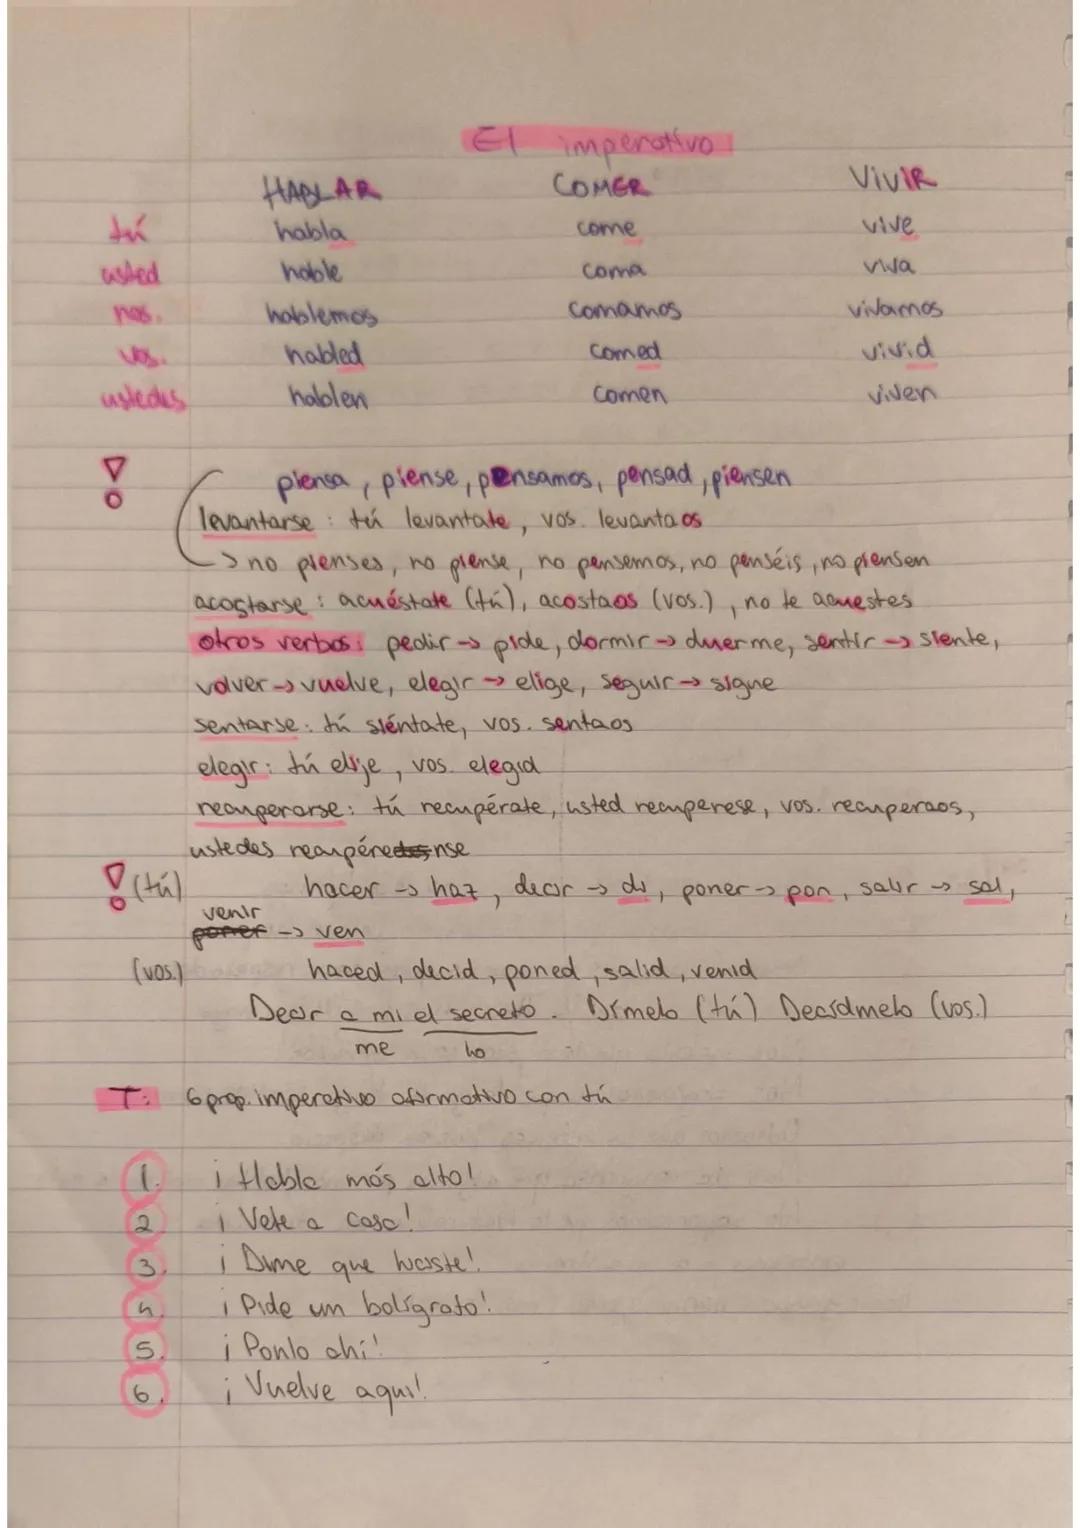 El imperativo
HABLAR COMER VIVIR
tú habla come vive
usted hable coma viva
nos. hablemos comamos vivamos
vos. habled comed vivid
ustedes hablen comen viven
! piensa, piense, pensamos, pensad, piensen
levantarse: tú levantate, vos. levantaos
→ no pienses, no piense, no pensemos, no penséis, no piensen
acostarse: acuéstate (tú), acostaos (vos.), no te acuestes
otros verbos: pedir → pide, dormir → duerme, sentir → siente,
volver → vuelve, elegir → elige, seguir → sigue
sentarse: tú siéntate, vos. sentaos
elegir: tú elije, vos. elegid
recuperarse: tú recupérate, usted recuperese, vos. recuperaos,
ustedes recupérense
! (tú) hacer → haz, decir → di, poner → pon, salir → sal,
venir → ven
(vos.) haced, decid, poned, salid, venid
Decir a mi el secreto. Dímelo (tú) Decídmelo (vos.)
me lo
T: 6 prop. imperativo afirmativo con tú
1. ¡Habla más alto!
2 ¡Vete a casa!
3. ¡Dime que hiciste!
4 ¡Pide un bolígrafo!
5. ¡Ponlo ahí!
6. ¡Vuelve aquí!